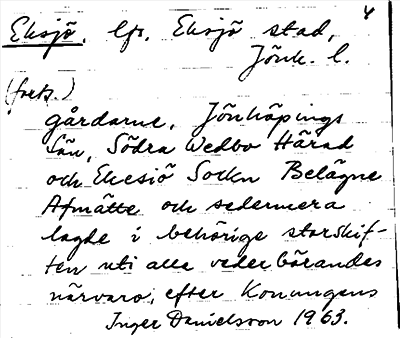 4
Eksjö, lfs. Eksjö stad,
Jönk. l.
(forts.)
gårdarne, Jönköpings
Län, Södra Wedbo Härad
och Ekesiö Sockn Belägne
Afmätte och sedermera
lagde i behörige storskif-
ten uti alle vederbörandes
närvaro, efter Konungens
Inger Danielsson 1963.